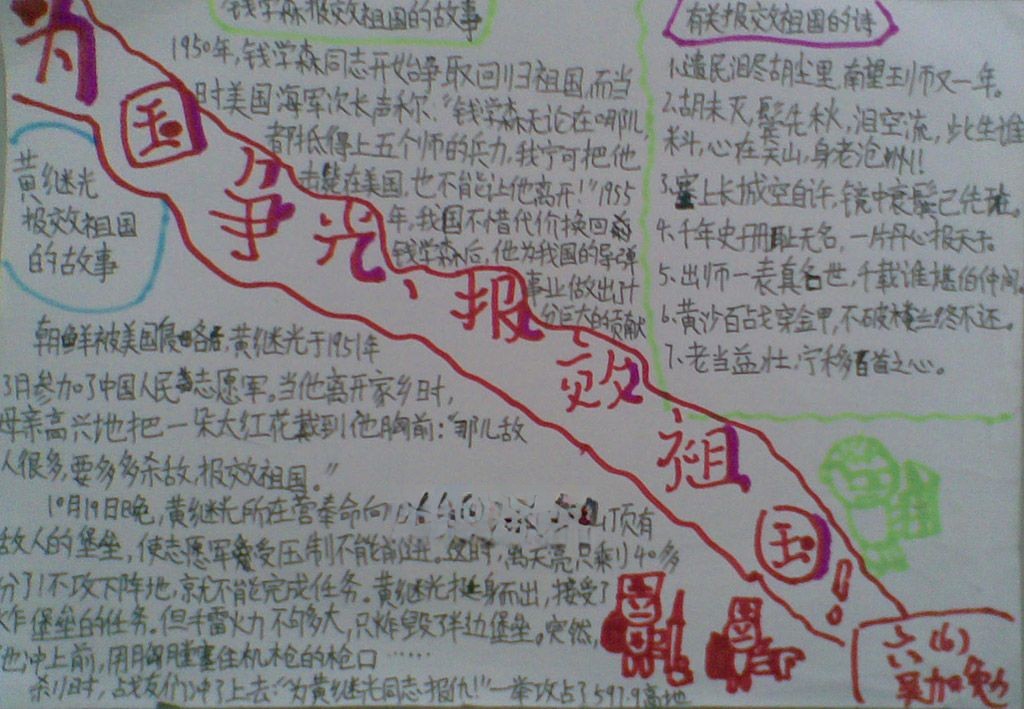 为国争光、报效祖国!
钱学森报效祖国的故事
1950年,钱学森同志开始争取回归祖国,而当
时美国海军次长声称:“钱学森无论在哪儿,
都抵得上五个师的兵力,我宁可把他
击毙在美国,也不能让他离开!”1955
年,我国不惜代价换回
钱学森后,他为我国的导弹
事业做出了十
分巨大的贡献
有关报效祖国的诗
1.遗民泪尽胡尘里,南望王师又一年。
2.胡未灭,鬓先秋,泪空流,此生谁
料,心在天山,身老沧州!!
3.塞上长城空自许,镜中衰鬓已先斑。
4.千年史册耻无名,一片丹心报天子。
5.出师一表真名世,千载谁堪伯仲间。
6.黄沙百战穿金甲,不破楼兰终不还。
7.老当益壮,宁移白首之心。
黄继光
报效祖国
的故事
朝鲜被美国侵略后,黄继光于1951年
3月参加了中国人民志愿军。当他离开家乡时,
母亲高兴地把一朵大红花戴到他胸前:“那儿敌
人很多,要多多杀敌,报效祖国。”
10月19日晚,黄继光所在营奉命向
山顶有
敌人的堡垒,使志愿军受压制不能前进。这时,离天亮只剩40多
分了!不攻下阵地,就不能完成任务。黄继光挺身而出,接受了
炸堡垒的任务。但手雷火力不够大,只炸毁了半边堡垒。突然,
他冲上前,用胸膛塞住机枪的枪口……
刹时,战友们冲了上去:“为黄继光同志报仇!”一举攻占了597.9高地
六(6)
吴加